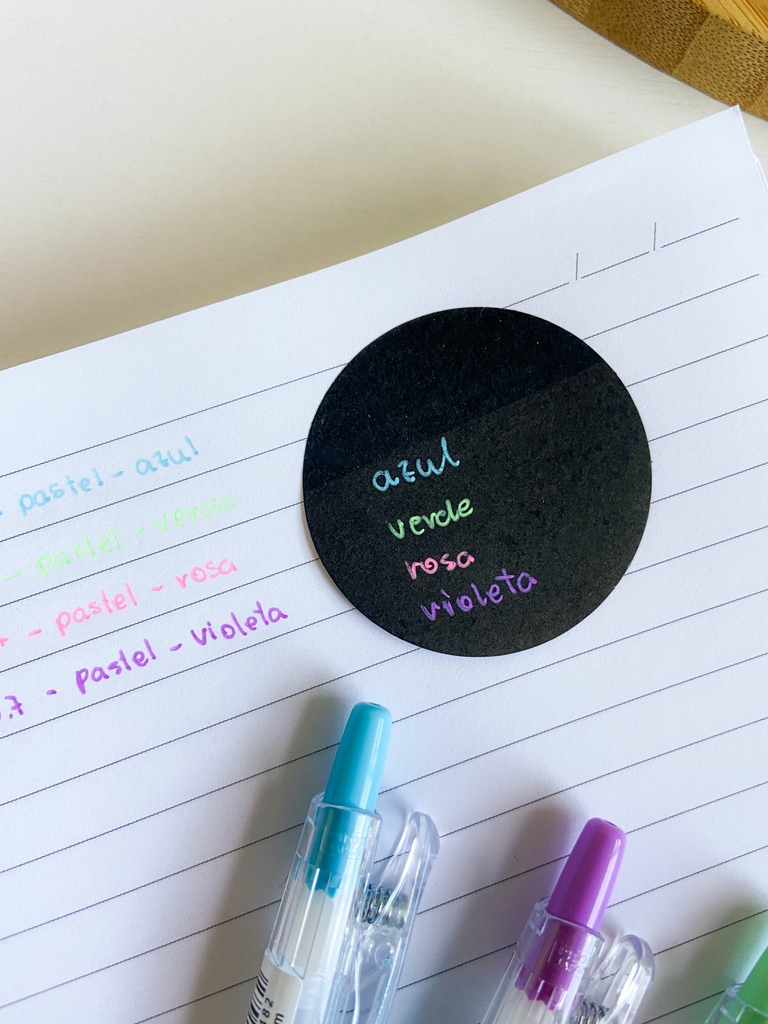 - pastel - azul
- pastel - verde
- pastel - rosa
.7 - pastel - violeta
azul
verde
rosa
violeta